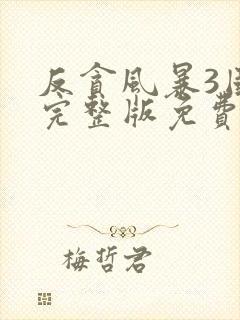 反貪風暴3
完整版免費
梅哲君